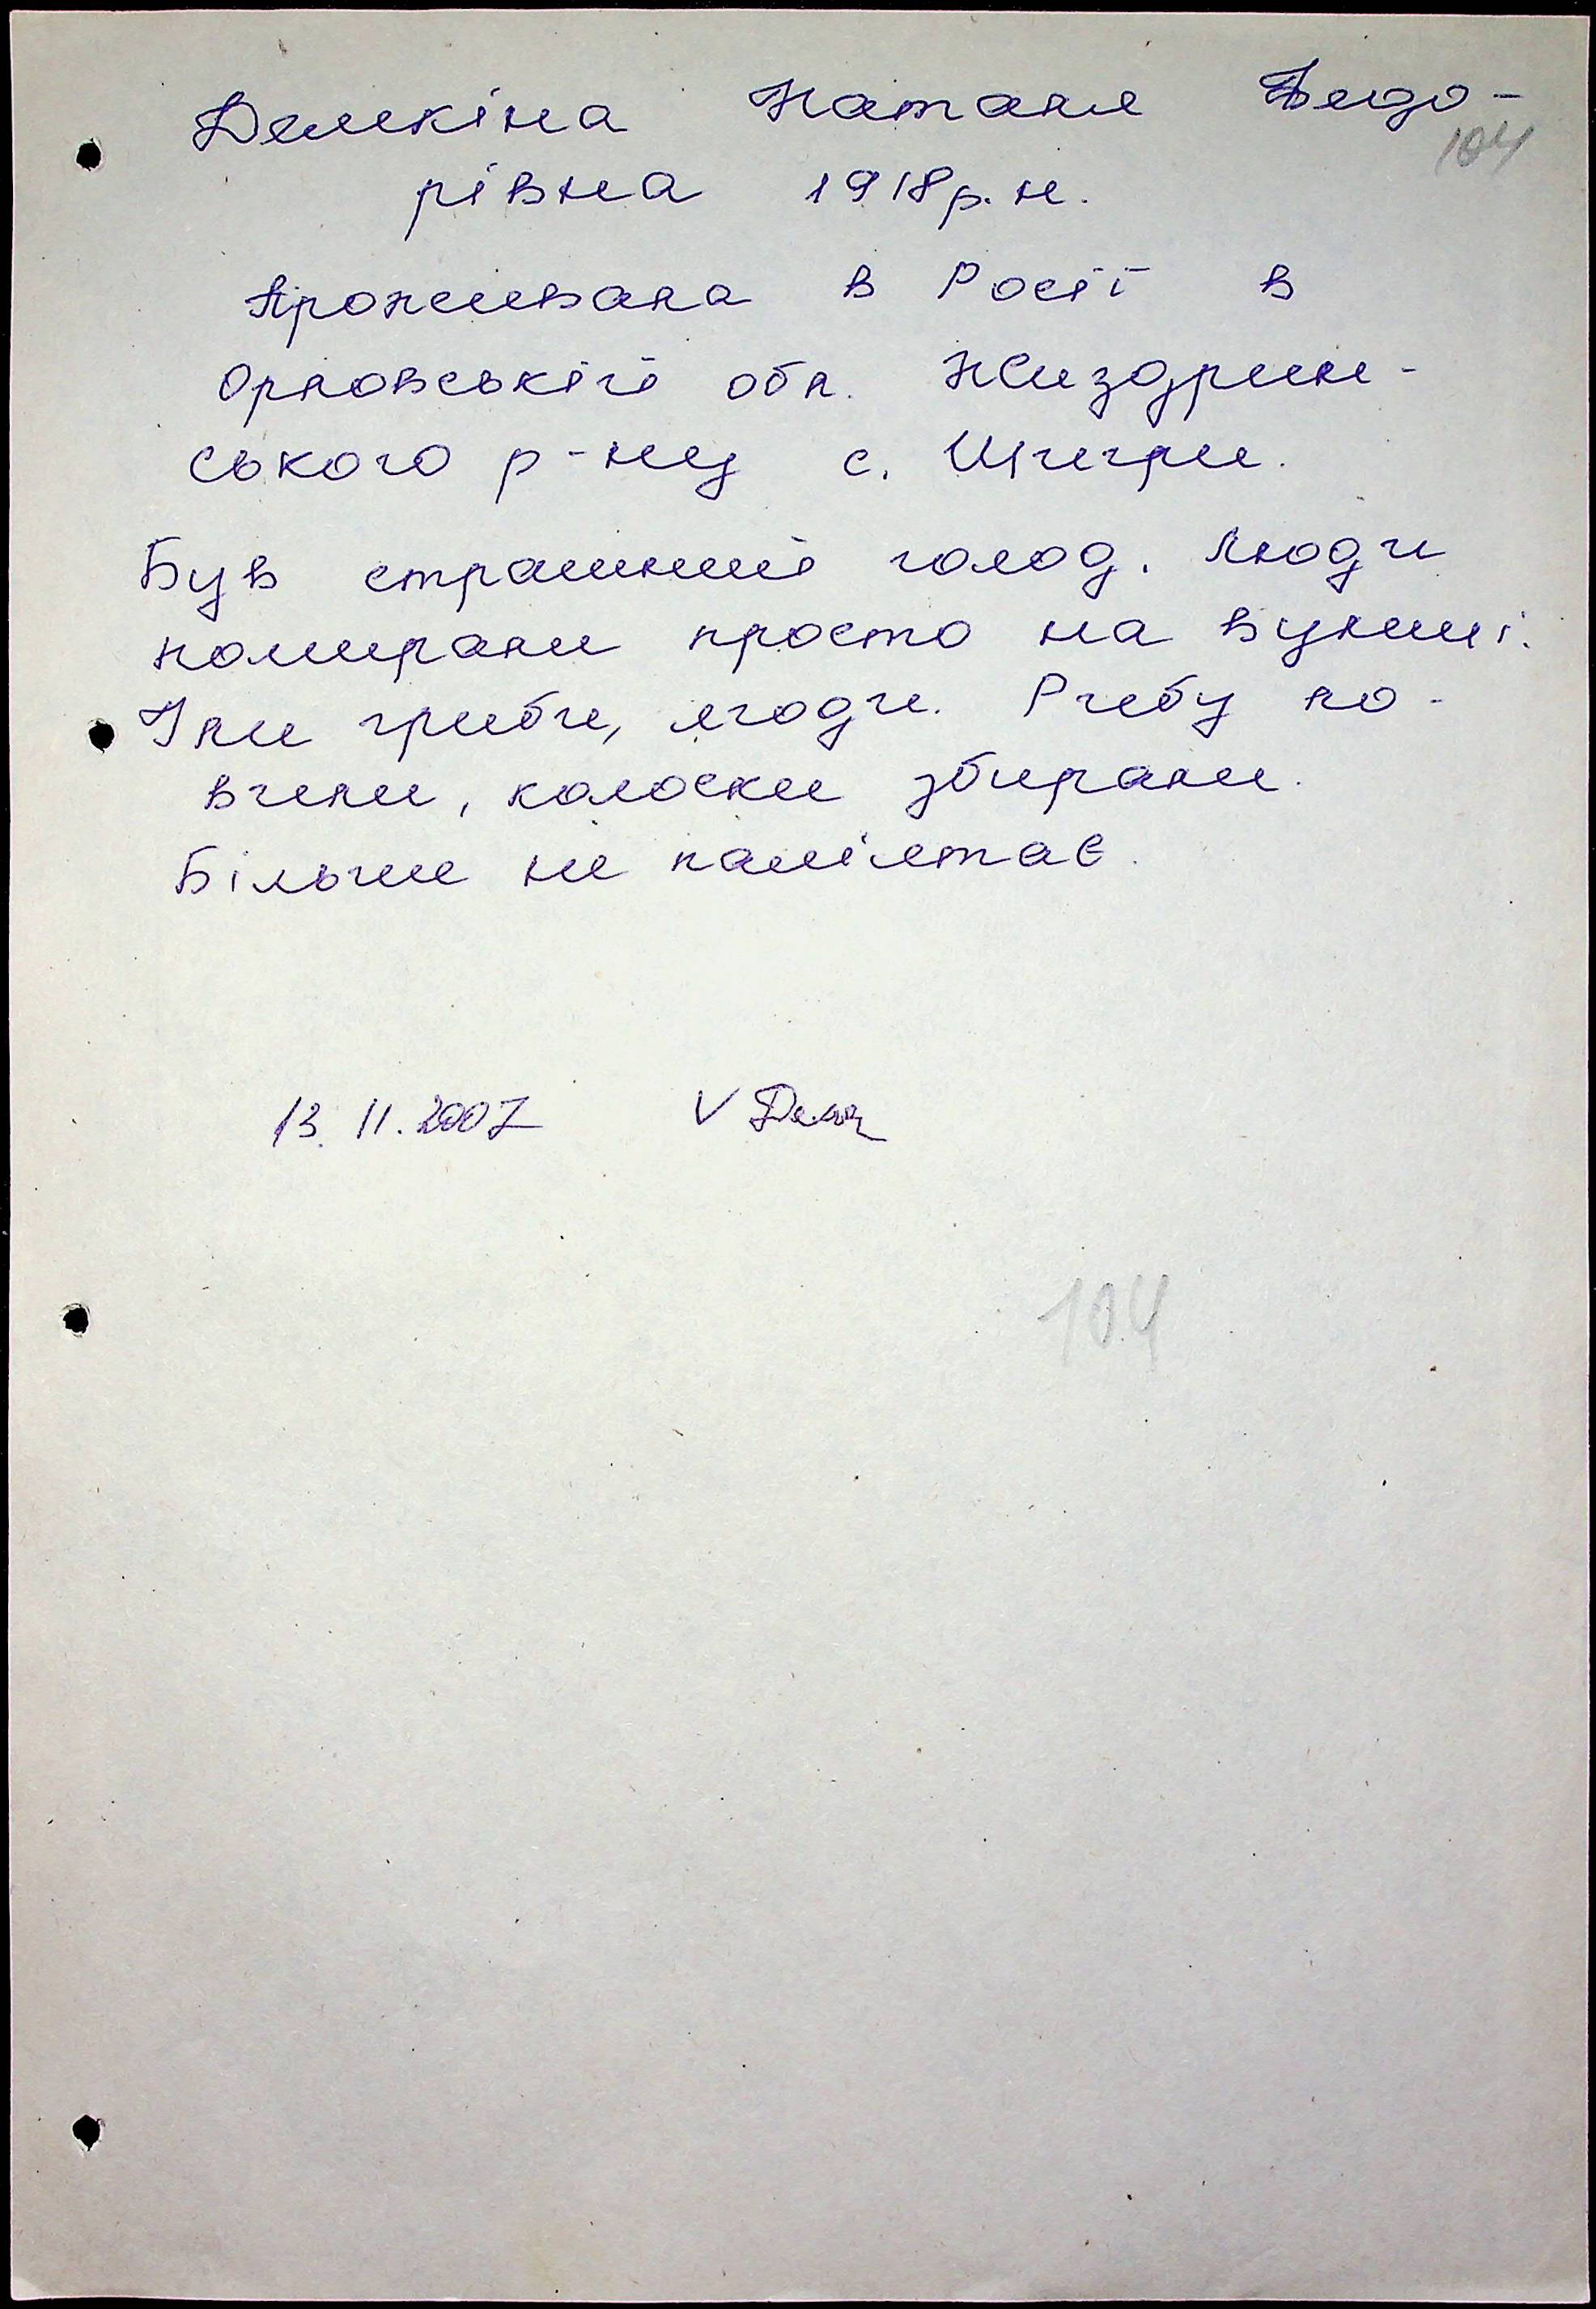 Демкіна Наталя Федо-
104
рівна 1918 р. н.
Проживала в Росії в
Орловській обл. Жиздрин-
ського р-ну с. Щигри.
Був страшний голод. Люди
помирали просто на вулиці.
Їли гриби, ягоди. Рибу ло-
вили, колоски збирали.
Більше не памʼятає.
13. 11. 2007 V Дем
104